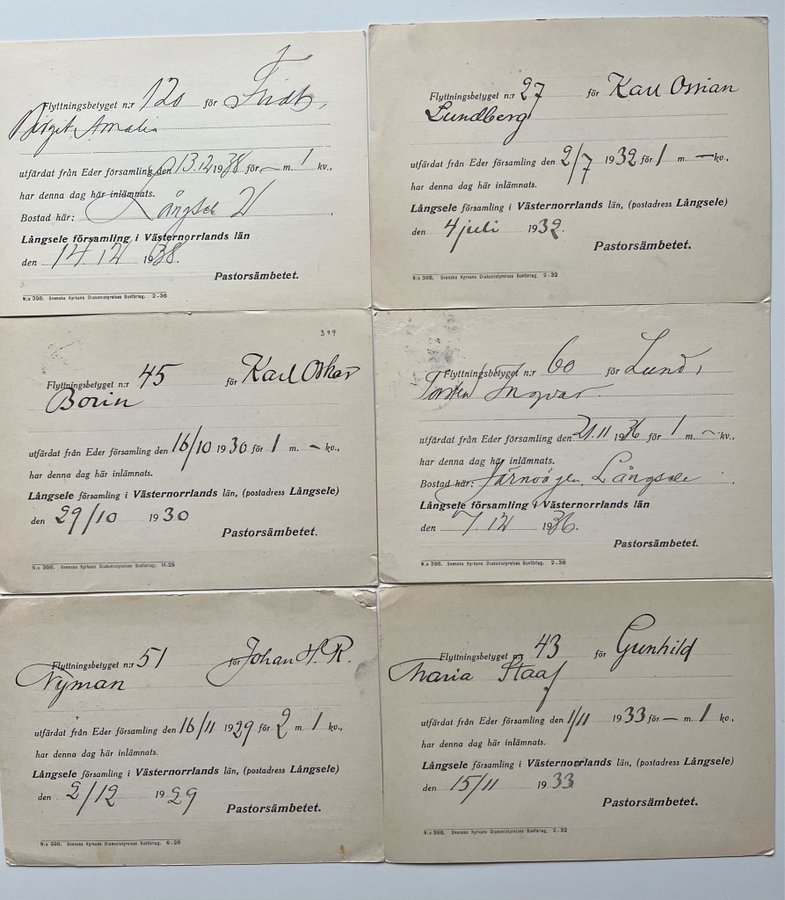 Flyttningsbetyget n:r 120 för
Birgit Amalia
utfärdat från Eder församling den 13.12 1938 för — m. 1 kv.,
har denna dag här inlämnats.
Bostad här: Långsele 21
Långsele församling i Västernorrlands län
den 14.12 1938.
Pastorsämbetet.
N:o 398. Svenska Kyrkans Diakonistyrelses Bokförlag. 2-36
Flyttningsbetyget n:r 27 för Karl Ossian
Lundberg
utfärdat från Eder församling den 2/7 1932 för 1 m. — kv.,
har denna dag här inlämnats.
Långsele församling i Västernorrlands län, (postadress Långsele)
den 4 juli 1932.
Pastorsämbetet.
N:o 398. Svenska Kyrkans Diakonistyrelses Bokförlag. 2-32
399
Flyttningsbetyget n:r 45 för Karl Oskar
Borin
utfärdat från Eder församling den 16/10 1930 för 1 m. — kv.,
har denna dag här inlämnats.
Långsele församling i Västernorrlands län, (postadress Långsele)
den 29/10 1930
Pastorsämbetet.
N:o 398. Svenska Kyrkans Diakonistyrelses Bokförlag. 11-28
Flyttningsbetyget n:r 60 för Lund,
Torsten Ingvar.
utfärdat från Eder församling den 21.11 1936 för 1 m. — kv.,
har denna dag här inlämnats.
Bostad här: Långsele
Långsele församling i Västernorrlands län
den 7.12 1936.
Pastorsämbetet.
N:o 398. Svenska Kyrkans Diakonistyrelses Bokförlag. 2-36
Flyttningsbetyget n:r 51 för Johan H. R.
Nyman
utfärdat från Eder församling den 16/11 1929 för 2 m. 1 kv.,
har denna dag här inlämnats.
Långsele församling i Västernorrlands län, (postadress Långsele)
den 2/12 1929
Pastorsämbetet.
N:o 398. Svenska Kyrkans Diakonistyrelses Bokförlag. 6-28
Flyttningsbetyget n:r 43 för Gunhild
Maria Staaf
utfärdat från Eder församling den 1/11 1933 för — m. 1 kv.,
har denna dag här inlämnats.
Långsele församling i Västernorrlands län, (postadress Långsele)
den 15/11 1933
Pastorsämbetet.
N:o 398. Svenska Kyrkans Diakonistyrelses Bokförlag. 2-32